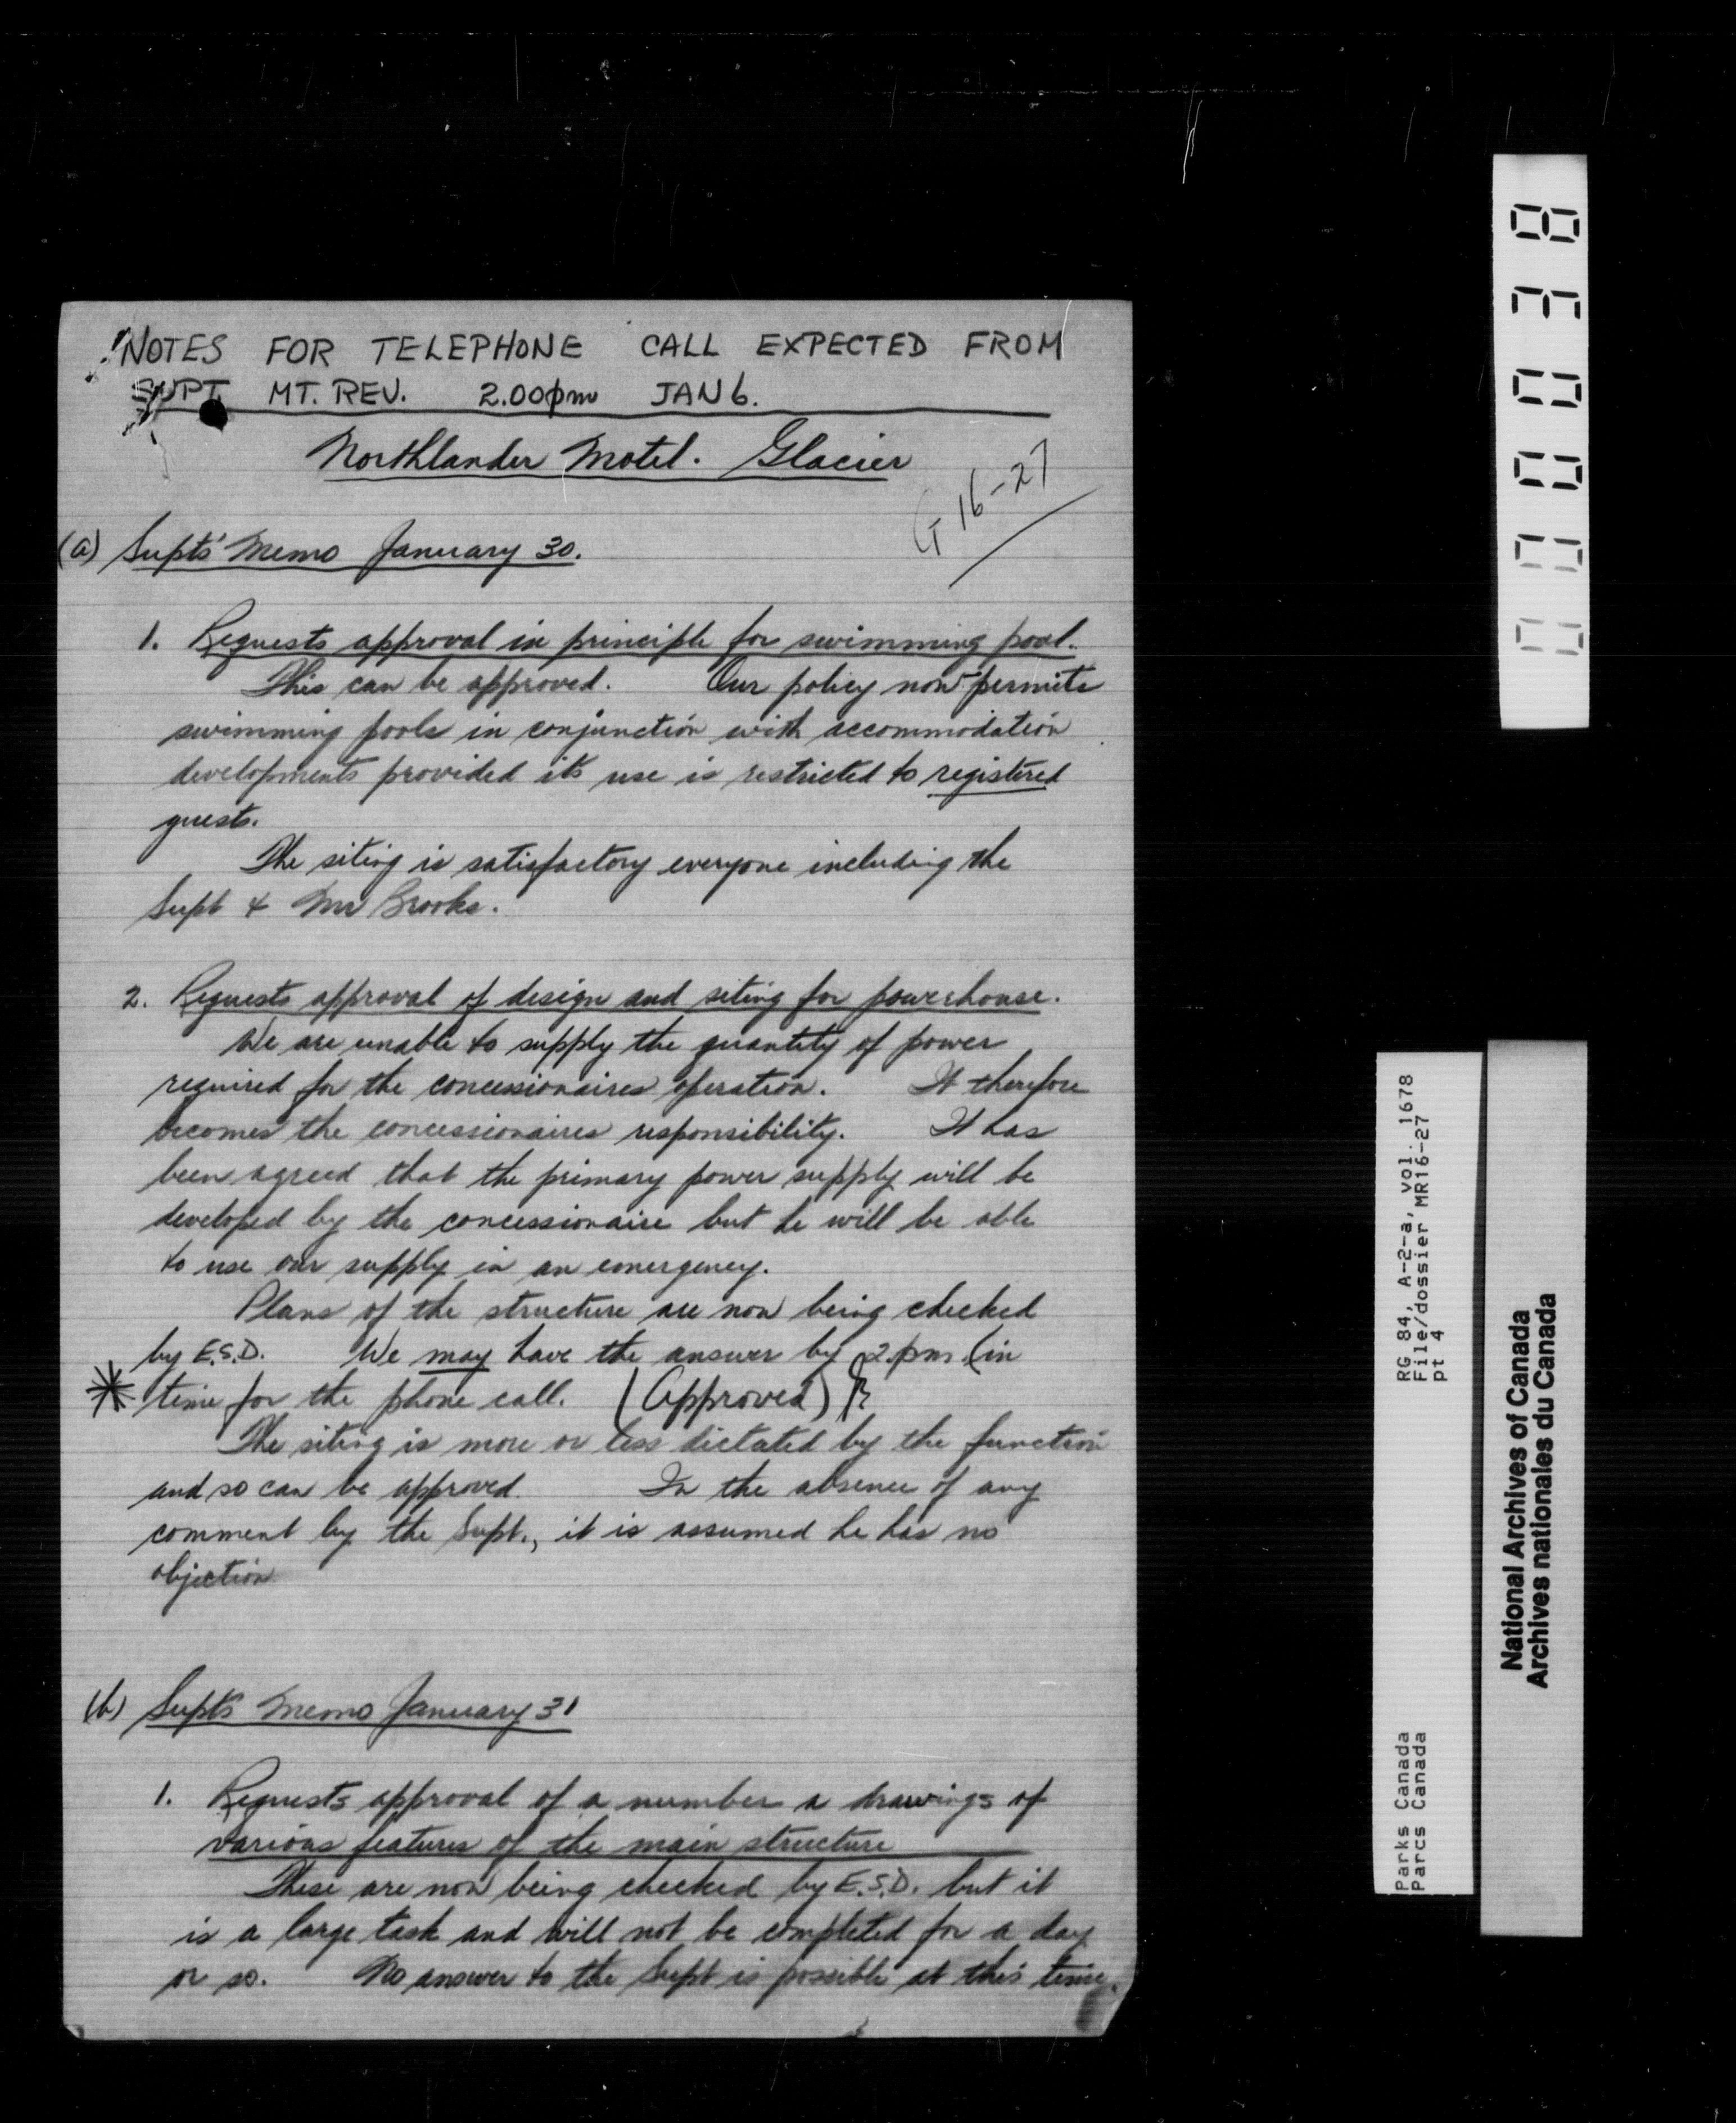 NOTES FOR TELEPHONE CALL EXPECTED FROM
SUPT. MT. REV. 2.00pm JAN 6.
Northlander Motel. Glacier
G 16-27
(a) Supts' Memo January 30.
1. Requests approval in principle for swimming pool.
This can be approved. Our policy now permits
swimming pools in conjunction with accommodation
developments provided its use is restricted to registered
guests.
The siting is satisfactory everyone including the
Supt & Mr Brooks.
2. Requests approval of design and siting for powerhouse.
We are unable to supply the quantity of power
required for the concessionaires operation. It therefore
becomes the concessionaires responsibility. It has
been agreed that the primary power supply will be
developed by the concessionaire but he will be able
to use our supply in an emergency.
Plans of the structure are now being checked
by E.S.D. We may have the answer by 2.pm. (in
* time for the phone call. (Approved)
The siting is more or less dictated by the function
and so can be approved. In the absence of any
comment by the Supt., it is assumed he has no
objection
(b) Supt's Memo January 31
1. Requests approval of a number a drawings of
various features of the main structure
These are now being checked by E.S.D. but it
is a large task and will not be completed for a day
or so. No answer to the Supt is possible at this time.
000038
RG 84, A-2-a, vol. 1678
File/dossier MR16-27
pt 4
Parks Canada
Parcs Canada
National Archives of Canada
Archives nationales du Canada